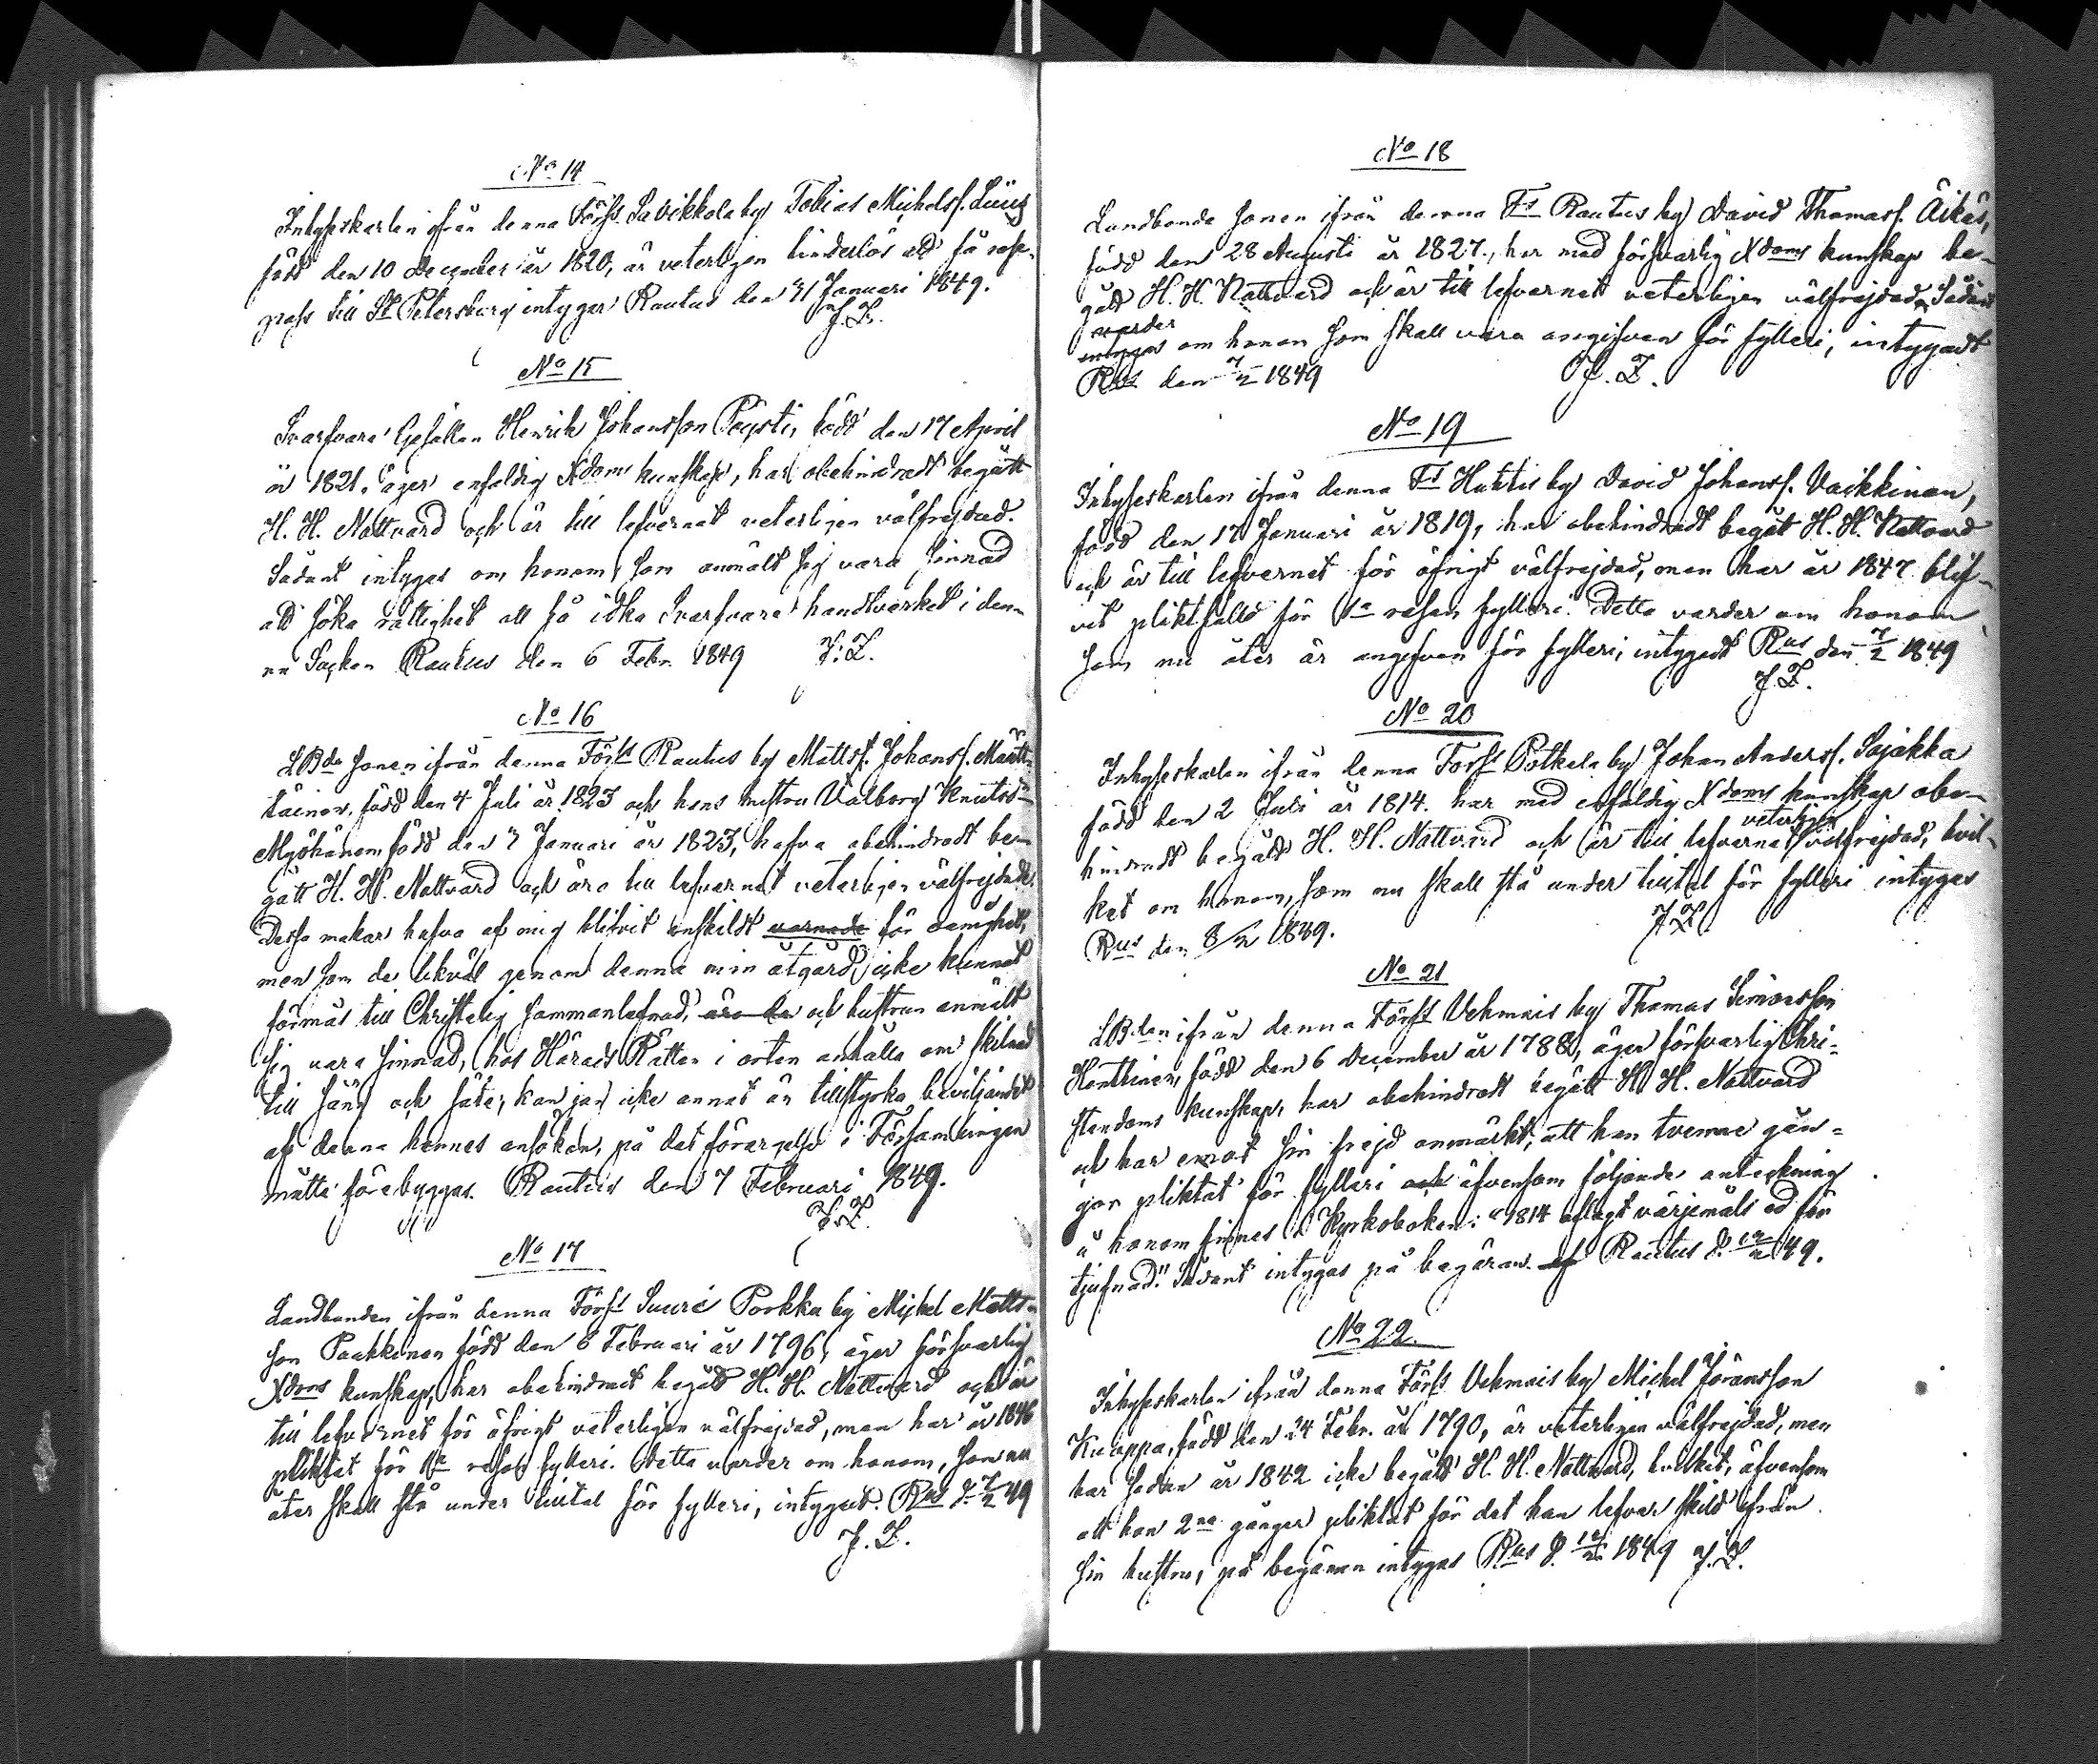 No 14
Inhyseskarlen ifrån denna Förs:s Savikkola by Tobias Michelss. Luug
född den 10 December år 1820, är veterligen hinderlös att få respa-
pass till St Petersburg intygar Rautus den 31 Januari 1849.
J. L.
No 15
Svarfvare Gesällen Henrik Johansson Pöysti, född den 17 April
år 1821, äger enfaldig Xdoms kunskap, har obehindradt begått
H. H. Nattvard och är till lefvernet veterligen välfrejdad.
Sådant intygas om honom, som anmält sig vara sinnad
att söka rättighet att få idka Svarfvare handtverket i den-
na Socken Rautus den 6 Febr. 1849 J. L.
No 16
LBde sonen ifrån denna Förs:s Rautus by Matts Johanss. Mänt-
täinen, född den 4 Juli år 1823 och hans hustru Valborg Knutsd:r
Myöhänen född den 7 Januari år 1823, hafva obehindradt be-
gått H. H. Nattvard och äro till lefvernet veterligen välfrejdade.
Dessa makar hafva af mig blifvit enskildt varnade för osämjhet,
men som de likväl genom denna min åtgärd icke kunnat
förmås till Christelig sammanlefnad, äro de och hustrun anmält
sig vara sinnad, hos Härads Rätten i orten anhålla om skilnad
till säng och säte; kan jag icke annat än tillstyrka beviljandet
af denna hennes ansökan, på det förargelse i Församlingen
måtte förebyggas. Rautus den 7 Februari 1849.
J. L.
No 17
Landbonden ifrån denna Förs:s Suuri Porkku by Michel Matts-
son Paukkunen född den 8 Februari år 1796, äger försvarlig
Xdoms kunskap, har obehindradt begått H. H. Nattvard och är
till lefvernet för öfrigt veterligen välfrejdad, men har år 1846
pliktat för 1a resan fylleri. Detta varder om honom, som nu
åter skall stå under tilltal för fylleri, intygadt. Rus d. 7/2 49
J. L.
No 18
Landbonde sonen ifrån denna Fs Rautus by David Thomass. Äikäs,
född den 28 Augusti år 1827, har med försvarlig Xdoms kunskap be-
gått H. H. Nattvard och är till lefvernet veterligen välfrejdad. Sådant
varder
intygas om honom som skall vara angifven för fylleri, intygadt
Rus den 7/2 1849 J. L.
No 19
Inhyseskarlen ifrån denna Fs Huhtis by David Johanss. Vaikkinen,
född den 17 Januari år 1819, har obehindradt begått H. H. Nattvard
och är till lefvernet för öfrigt välfrejdad, men har år 1847 blif-
vit pliktfälld för 1a resan fylleri. Detta varder om honom
som nu åter är angifven för fylleri, intygadt Rus den 7/2 1849
J. L.
No 20
Inhyseskarlen ifrån denna Förs:s Potkela by Johan Anderss. Sajakka
född den 2 Juli år 1814. har med enfaldig Xdoms kunskap obe-
veterligen
hindradt begått H. H. Nattvard och är till lefvernet välfrejdad, hvil-
ket om honom, som nu skall stå under tilltal för fylleri intygas
Rus den 8/2 1849. J. L.
No 21
LBden ifrån denna Förs:s Vehmais by Thomas Simonsson
Hanttinen, född den 6 December år 1788, äger försvarlig Chri-
stendoms kunskap, har obehindradt begått H. H. Nattvard
och har emot sin frejd anmärkt, att han tvenne gån-
ger pliktat för fylleri och äfvensom följande anteckning
å honom finnes i Kyrkoboken: "1814 aflagt värjemåls ed för
tjufnad." Sådant intygas på begäran. af Rautus d. 12/2 49.
No 22.
Inhyseskarlen ifrån denna Förs:s Vehmais by Michel Jöransson
Kuappa, född den 24 Febr. år 1790, är veterligen välfrejdad, men
har sedan år 1842 icke begått H. H. Nattvard, hvilket, äfvensom
att han 2ne gånger pliktat för det han lefver skild ifrån
sin hustru, på begäran intygas Rus d. 12/2 1849 J. L.